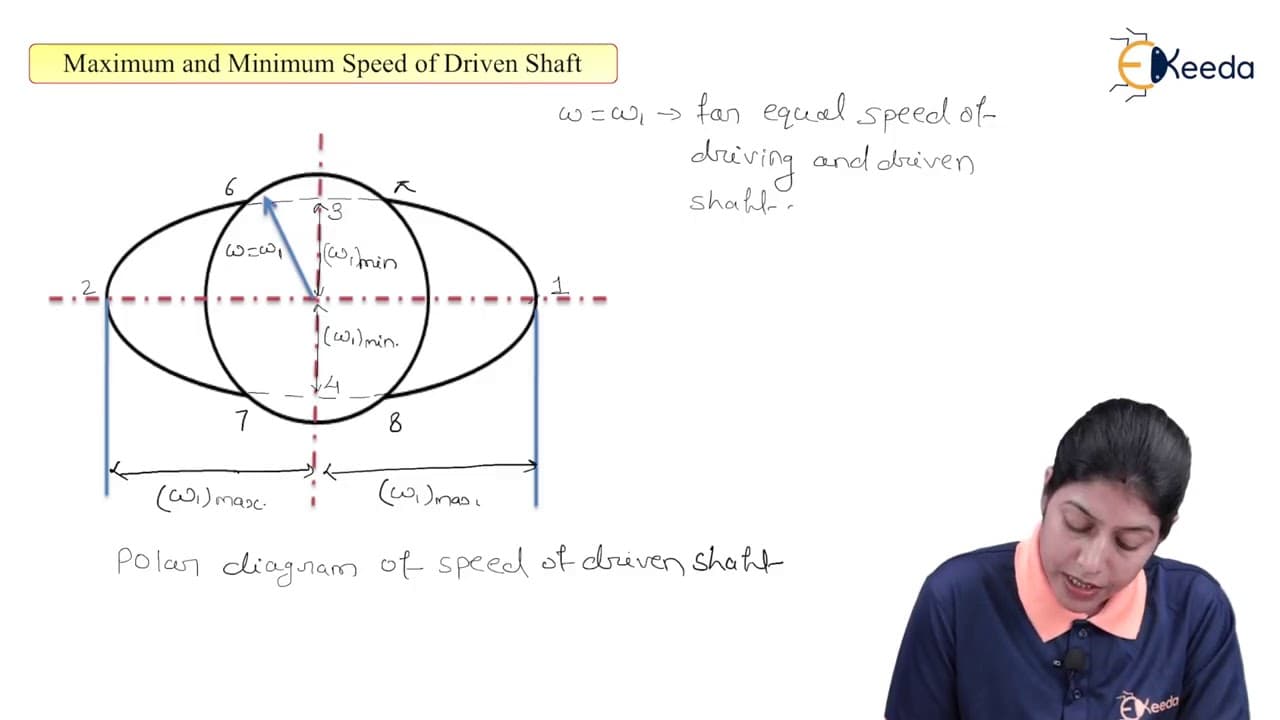 Maximum and Minimum Speed of Driven Shaft
EKeeda
ω = ω₁ → for equal speed of
driving and driven
shaft.
6
5
3
ω=ω₁
(ω₁)min
2
1
(ω₁)min.
4
7
8
(ω₁)max.
(ω₁)max.
Polar diagram of speed of driven shaft
EKeeda